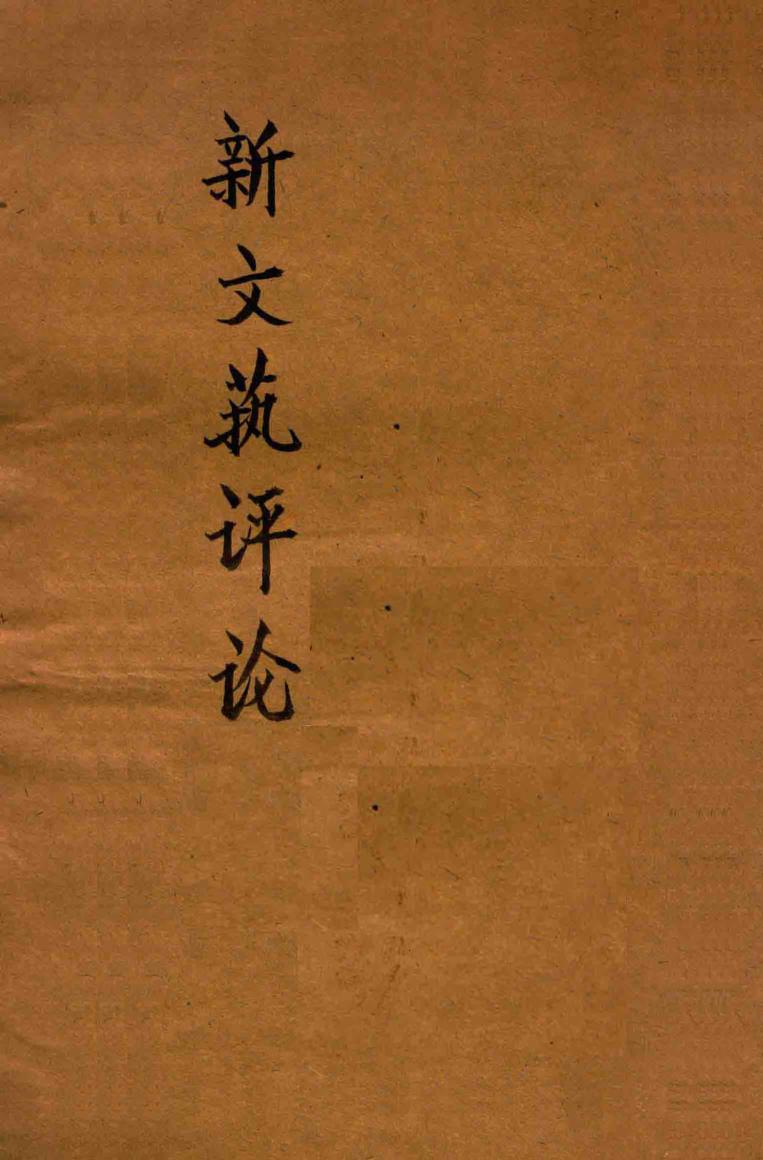 新文蓺评论